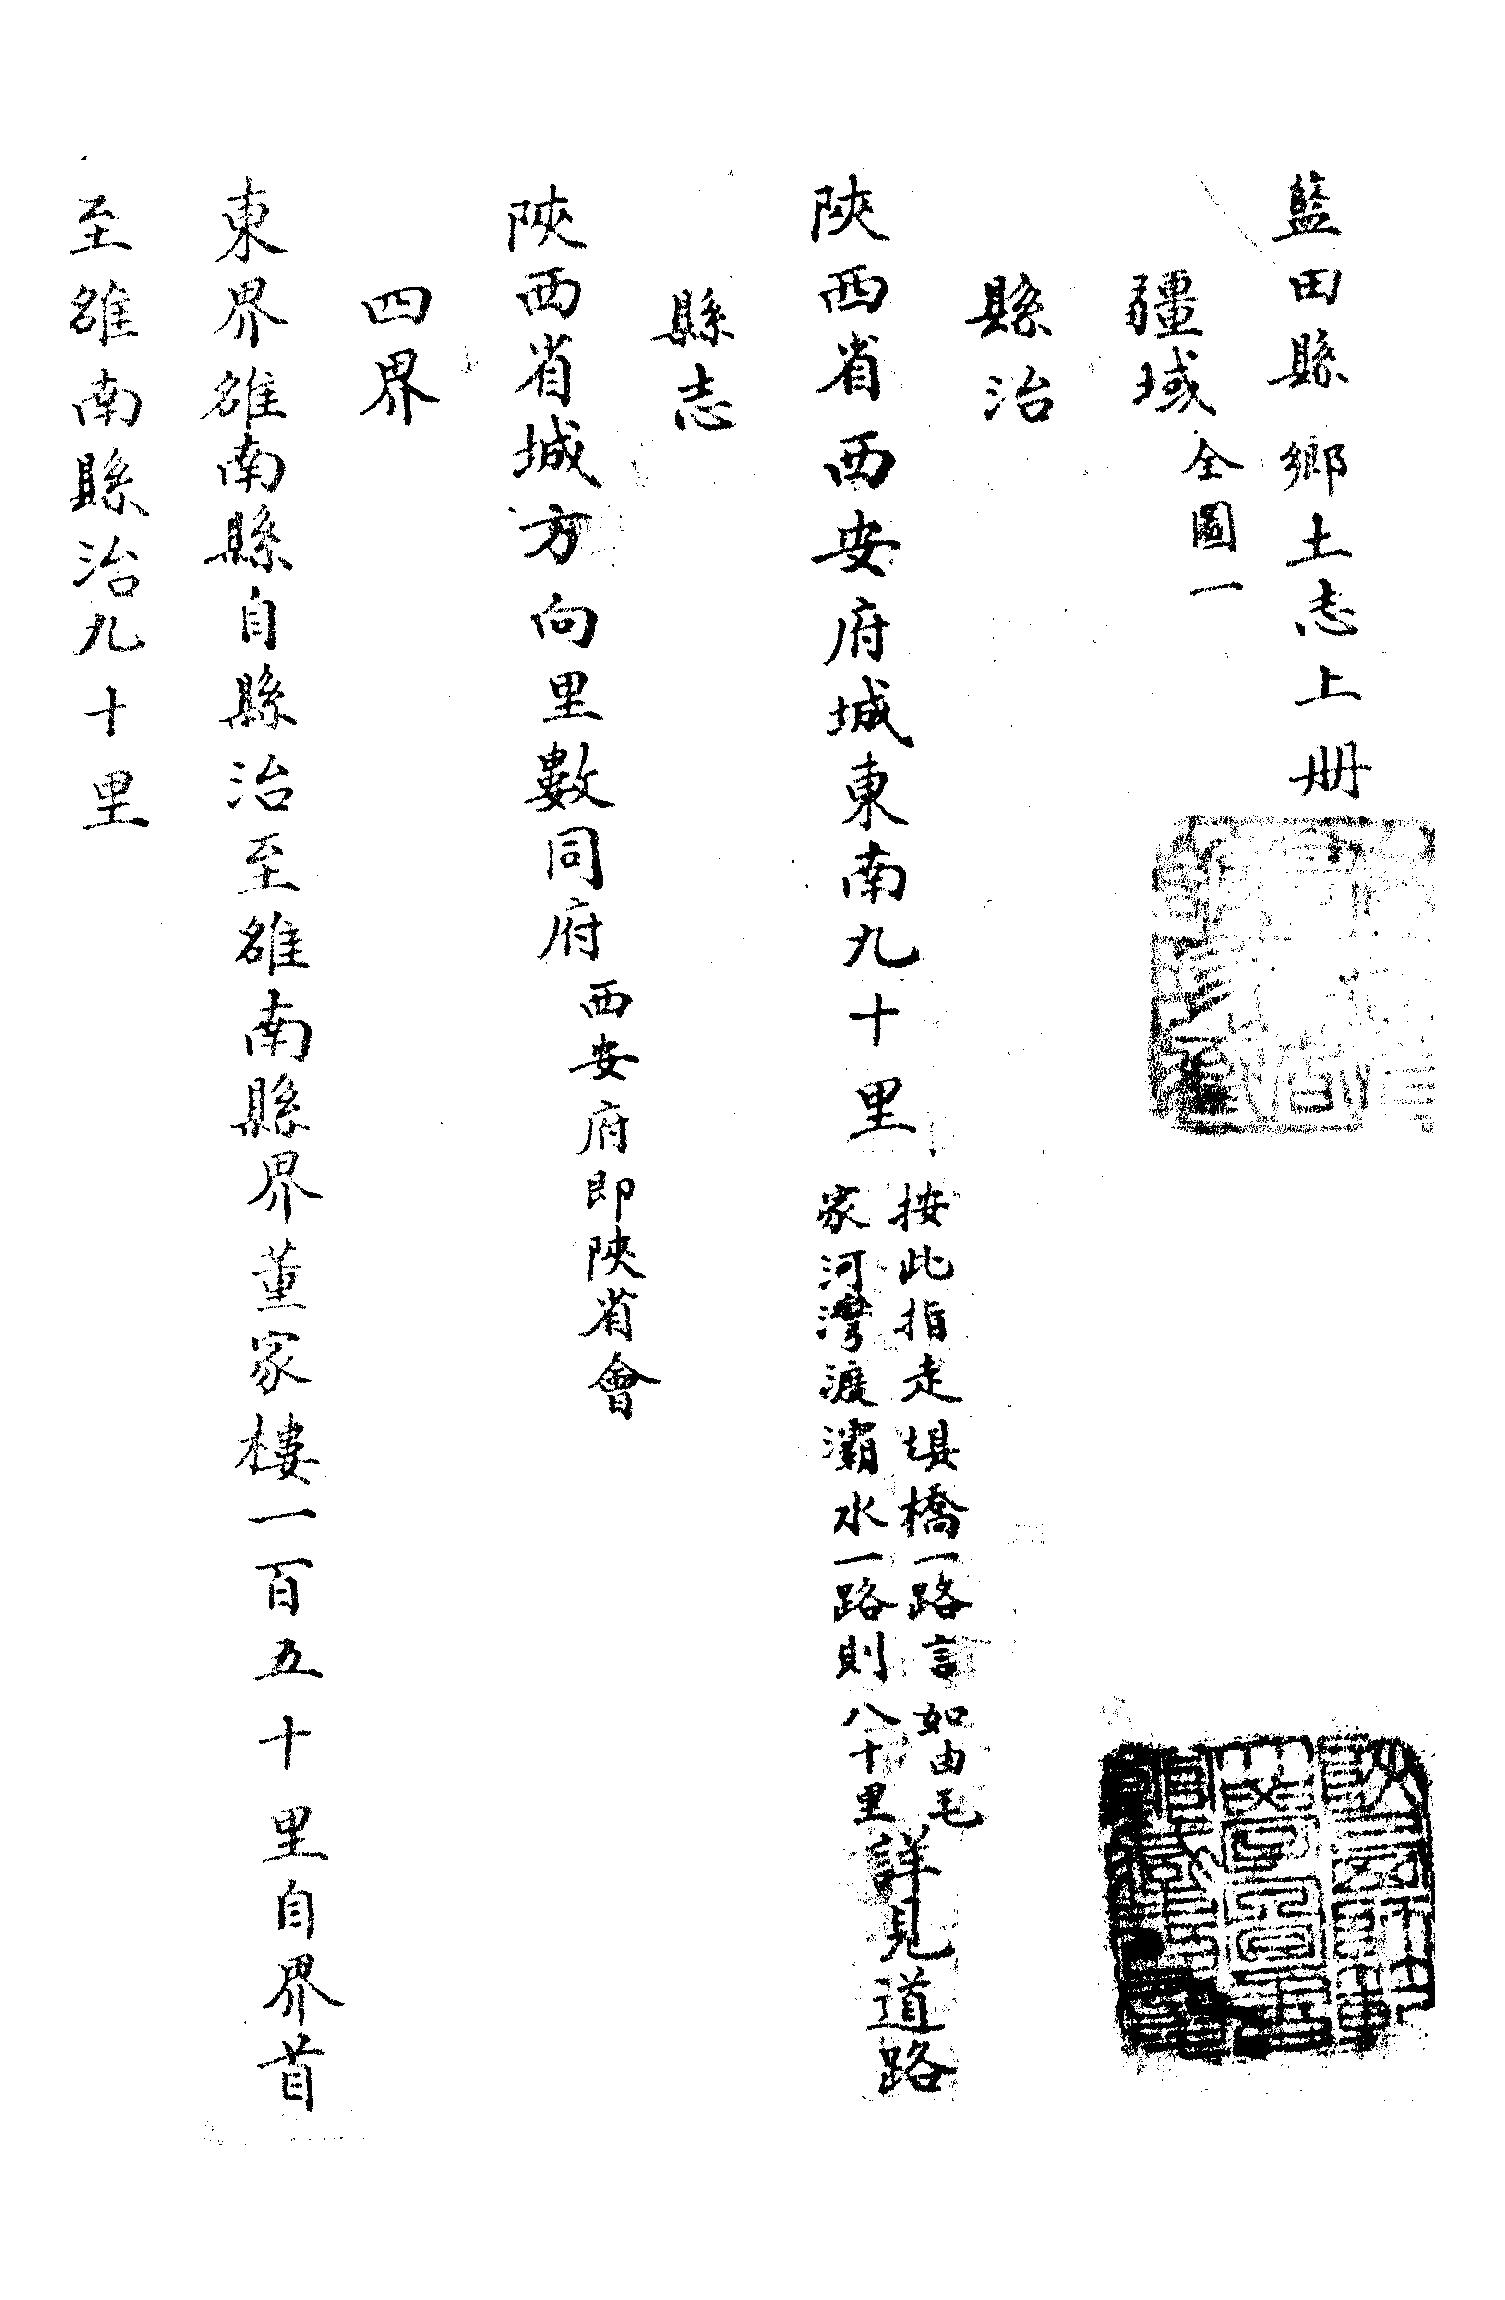 藍田縣鄉土志上册
疆域全圖一
縣治
陝西省西安府城東南九十里
按此指走垻橋一路言如由毛
家河灣渡灞水一路則八十里
詳見道路
縣志
陝西省城方向里數同府西安府即陝省會
四界
東界雒南縣自縣治至雒南縣界董家樓一百五十里自界首
至雒南縣治九十里